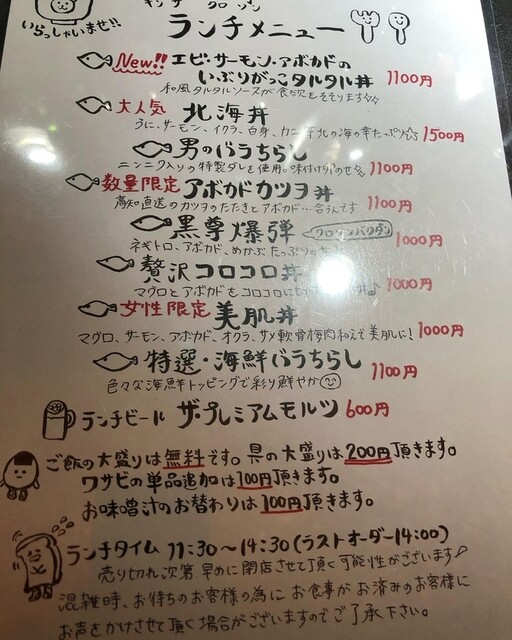 いらっしゃいませ!!
ランチメニュー
New!! エビ・サーモン・アボカドの
いぶりがっこタルタル丼 1100円
和風タルタルソースが食欲をそそります☆☆
大人気 北海丼
うに、サーモン、イクラ、白身、カニ 北の海の幸たっぷり☆ 1500円
男のバラちらし
ニンニク入りの特製ダレを使用。味付けのせ☆ 1100円
数量限定 アボカドカツヲ丼
高知直送のカツヲのたたきとアボカド…合うんです 1100円
黒尊爆弾 クロソンバクダン
ネギトロ、アボカド、めかぶ たっぷりの 1000円
贅沢コロコロ丼
マグロとアボカドもコロコロに 丼♪ 1000円
女性限定 美肌丼
マグロ、サーモン、アボカド、オクラ、サメ軟骨梅肉和えで美肌に! 1000円
特選・海鮮バラちらし
色々な海鮮トッピングで彩り鮮やか 1100円
ランチビール ザ・プレミアムモルツ 600円
ご飯の大盛りは無料です。具の大盛りは200円頂きます。
ワサビの単品追加は100円頂きます。
お味噌汁のお替わりは100円頂きます。
ランチタイム 11:30〜14:30(ラストオーダー14:00)
売り切れ次第、早めに閉店させて頂く可能性がございます
混雑時、お待ちのお客様の為に お食事が お済みのお客様に
お声をかけさせて頂く場合がございますのでご了承下さい。